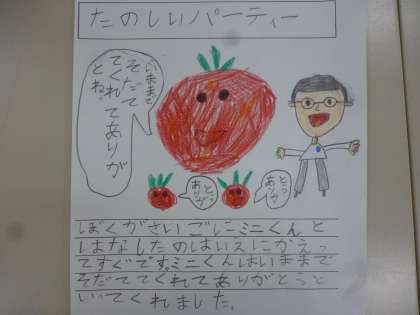 たのしいパーティー
いままで
そだて
てくれてありが
とね。
ありが
とう
ありが
とう
ぼくがさいごにミニくんと
はなしたのはいえにかえっ
てすぐです。ミニくんはいままで
そだててくれてありがとうと
いってくれました。